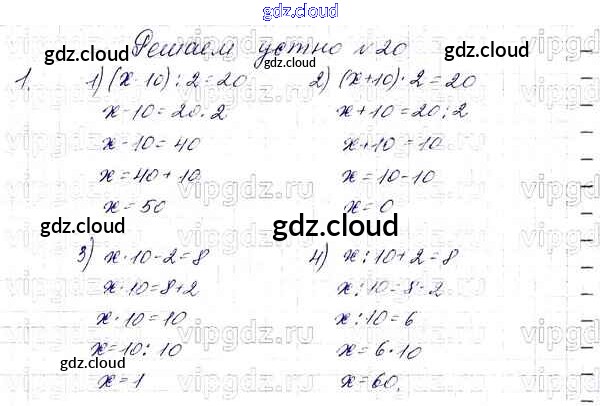 gdz.cloud
Решаем устно №20
gdz.cloud
gdz.cloud
1. 1) (x-10):2=20
x-10=20·2
x-10=40
x=40+10
x=50
2) (x+10)·2=20
x+10=20:2
x+10=10
x=10-10
x=0
gdz.cloud
gdz.cloud
3) x·10-2=8
x·10=8+2
x·10=10
x=10:10
x=1
4) x:10+2=8
x:10=8-2
x:10=6
x=6·10
x=60,
gdz.cloud
gdz.cloud
vipgdz.ru
vipgdz.ru
vipgdz.ru
vipgdz.ru